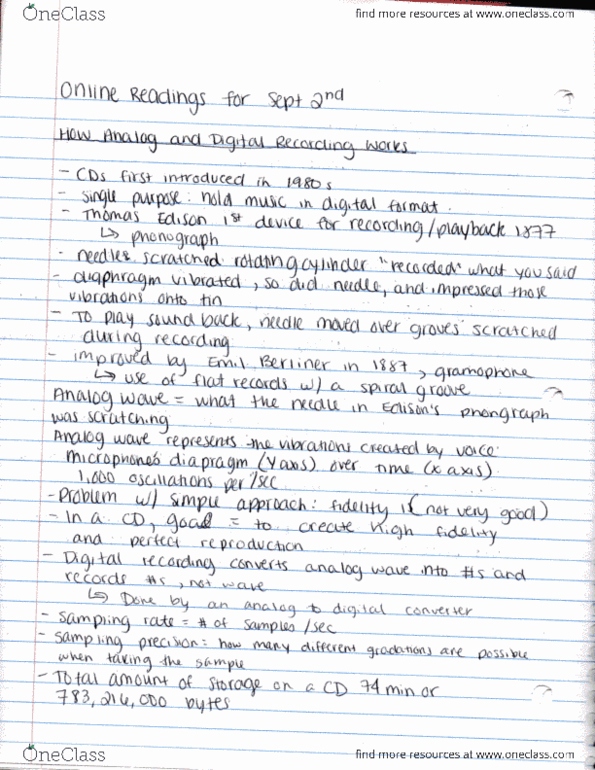 OneClass
find more resources at www.oneclass.com
Online Readings for Sept 2nd
How Analog and Digital Recording Works
- CDs first introduced in 1980s
- single purpose: hold music in digital format.
- Thomas Edison 1st device for recording/playback 1877
↳ phonograph
- needles scratched rotating cylinder "recorded" what you said
- diaphragm vibrated, so did needle, and impressed those
vibrations onto tin
- To play sound back, needle moved over groves scratched
during recording
- improved by Emil Berliner in 1887, gramophone
↳ use of flat records w/ a spiral groove
Analog wave = what the needle in Edison's phongraph
was scratching
Analog wave represents the vibrations created by voice
microphones diapragm (y axis) over time (x axis)
1,000 oscillations per/sec
- Problem w/ simple approach: fidelity is (not very good)
- In a CD, goal = to create high fidelity
and perfect reproduction
- Digital recording converts analog wave into #s and
records #s, not wave
↳ Done by an analog to digital converter
- sampling rate = # of samples/sec
- sampling precision: how many different gradations are possible
when taking the sample
- Total amount of storage on a CD 74 min or
783,216,000 bytes
OneClass
find more resources at www.oneclass.com